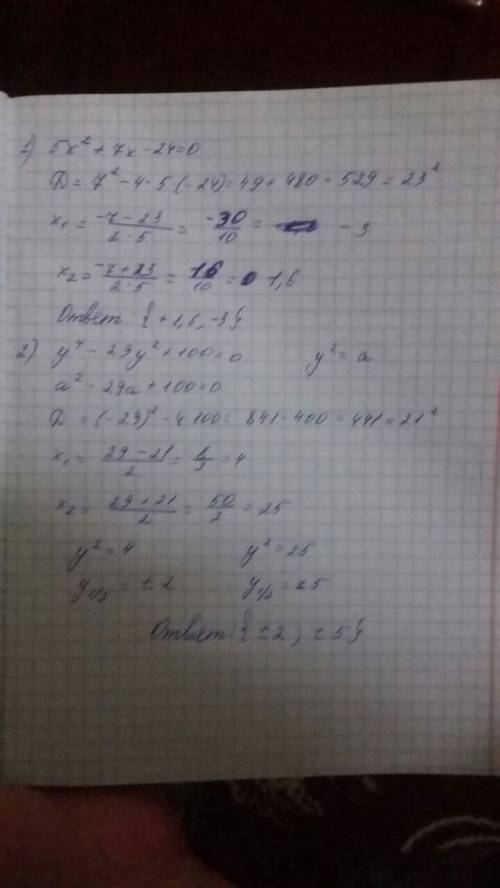 1) 5x² + 7x - 24 = 0
D = 7² - 4·5(-24) = 49 + 480 = 529 = 23²
x₁ = -7 - 23 / 2·5 = -30 / 10 = -3
x₂ = -7 + 23 / 2·5 = 16 / 10 = 1,6
Ответ: {+1,6, -3}
2) y⁴ - 29y² + 100 = 0 y² = a
a² - 29a + 100 = 0
D = (-29)² - 4·100 = 841 - 400 = 441 = 21²
x₁ = 29 - 21 / 2 = = 4
x₂ = 29 + 21 / 2 = 50 / 2 = 25
y² = 4 y² = 25
y₁/₂ = ± 2 y₁/₂ = ± 5
Ответ: {±2 ; ±5}